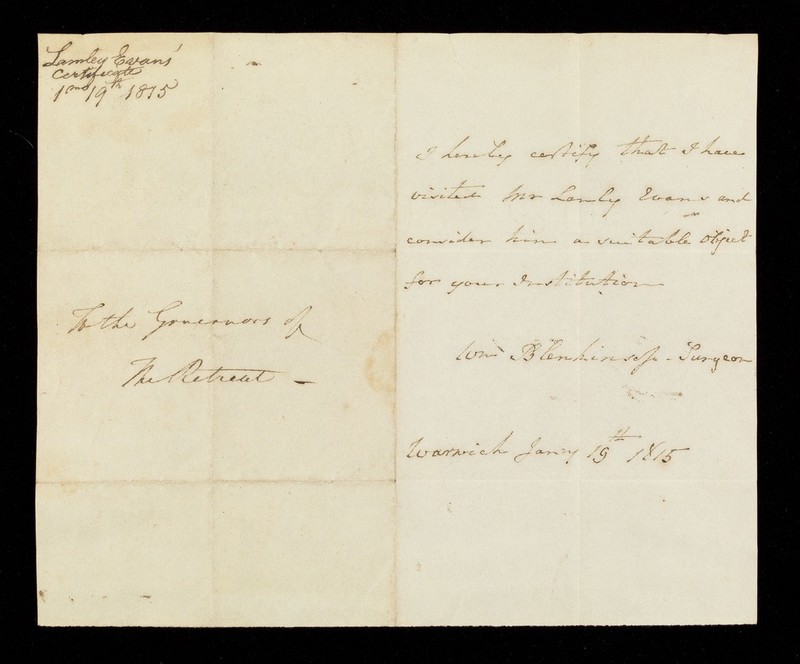 Lamley Evans'
Certificate
1 mo 19th 1815
To the Governors of
The Retreat –
I hereby certify that I have
visited Mr Lamly Evans and
consider him a suitable object
for your Institution
Wm Blenkinsop - Surgeon
Warwick Jany 19th 1815